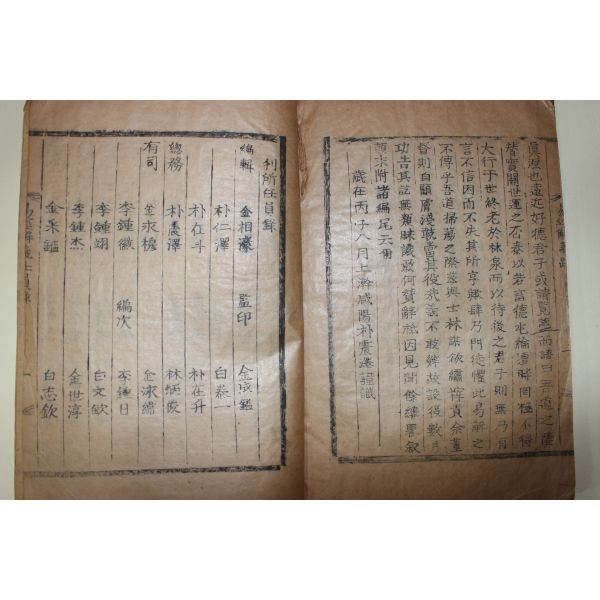 眞履也遠近好德君子或請覽焉而語曰吾道之隆
替實關世運之否泰以若富德屯倫遭時罔極不得
大行于世終老於林泉而以待後之君子則無乃月
言不信因而不失其所享歟肆乃門徒懼此易觧之
不傳乎吾道掃蕩之際玆與士林謀欲繡梓責余董
督則自顧膚淺敢當其役哉義不敢辭故役得數月
功告其訖無類昧識敢何贊辭秪因見聞餘緖畧叙
顚末附諸編尾云爾
歲在丙子八月上澣咸陽朴震 謹識
刊所任員錄
編輯 金相 監印 金成鑑
朴仁澤 白泰一
朴在斗 朴在升
總務 朴 澤 林炳 
有司 金永 金 繡
李鍾徽 編次 李鍾日
李鍾翊 白文欽
李鍾杰 金世淳
金 鑑 白志欽